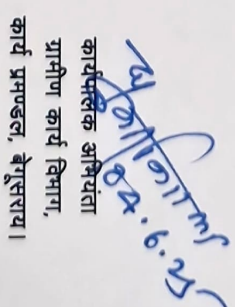 04.6.25
कार्यपालक अभियंता
ग्रामीण कार्य विभाग,
कार्य प्रमण्डल, बेगूसराय।